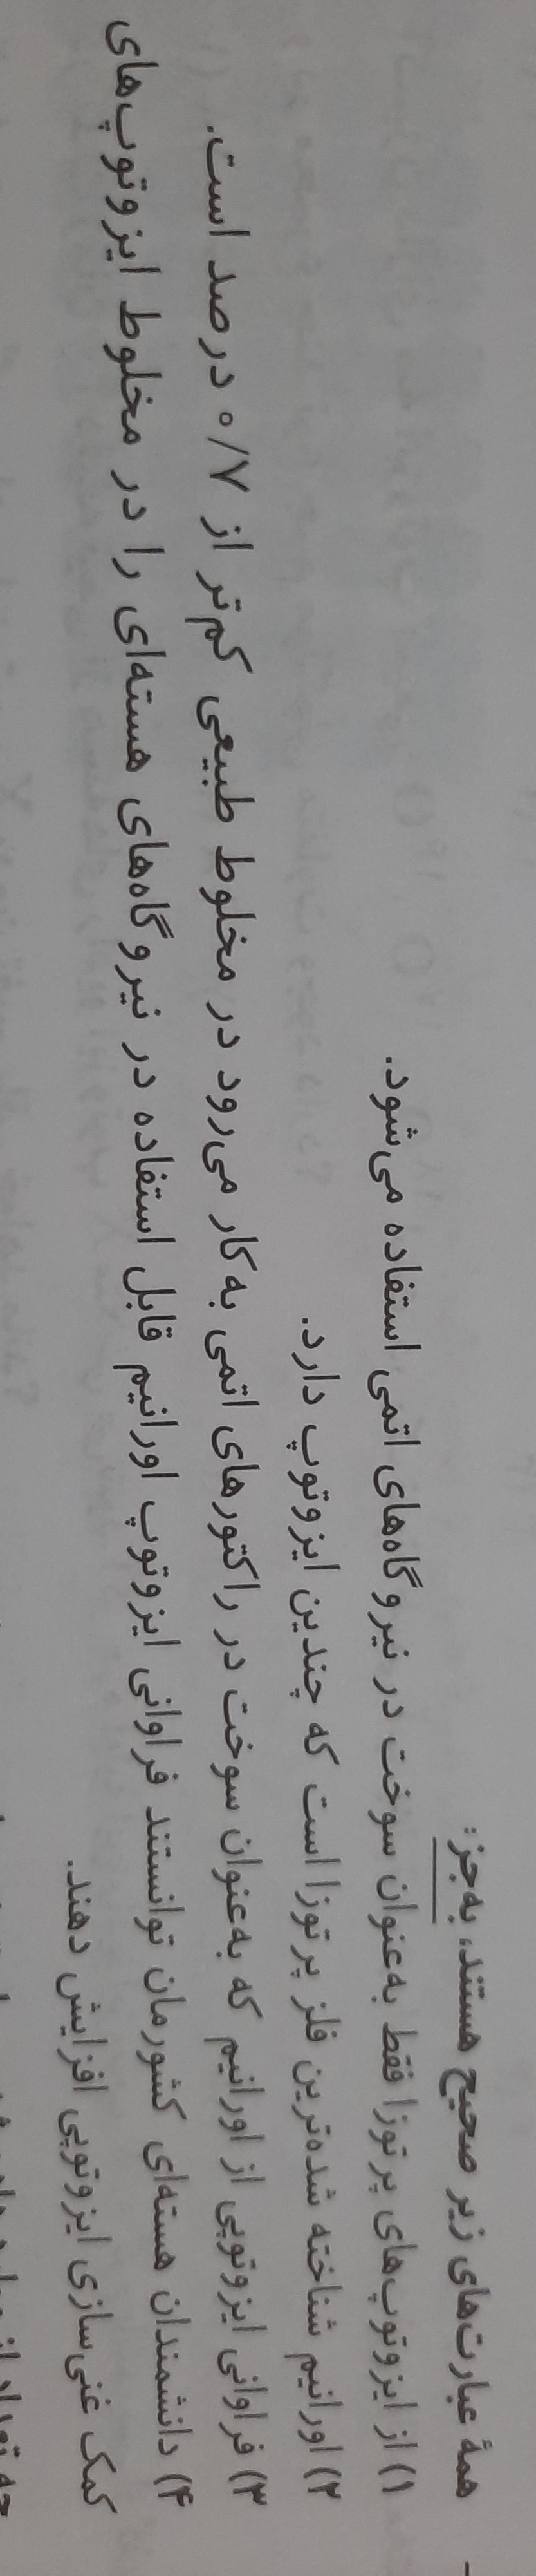 همهٔ عبارت‌های زیر صحیح هستند، به‌جز:
۱) از ایزوتوپ‌های پرتوزا فقط به‌عنوان سوخت در نیروگاه‌های اتمی استفاده می‌شود.
۲) اورانیم شناخته شده‌ترین فلز پرتوزا است که چندین ایزوتوپ دارد.
۳) فراوانی ایزوتوپی از اورانیم که به‌عنوان سوخت در راکتورهای اتمی به‌کار می‌رود در مخلوط طبیعی کم‌تر از ۰/۷ درصد است.
۴) دانشمندان هسته‌ای کشورمان توانستند فراوانی ایزوتوپ اورانیم قابل استفاده در نیروگاه‌های هسته‌ای را در مخلوط ایزوتوپ‌های
کمک غنی‌سازی ایزوتوپی افزایش دهند.